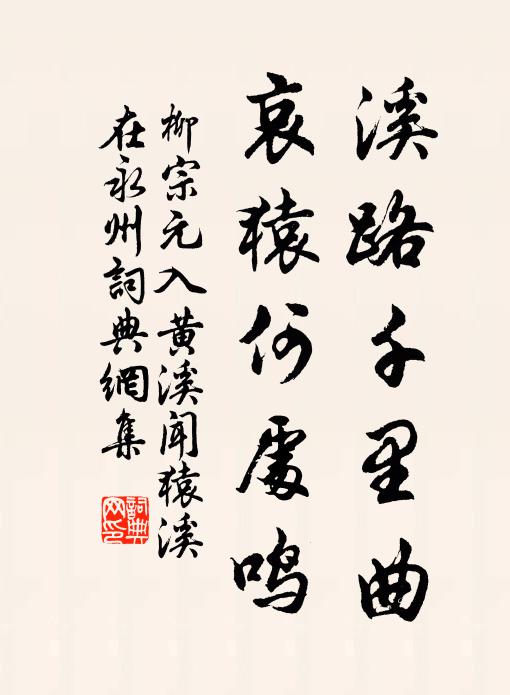 溪路千里曲
哀猿何處鳴
柳宗元入黄溪聞猿溪
在永州詞典網集
詞典網印